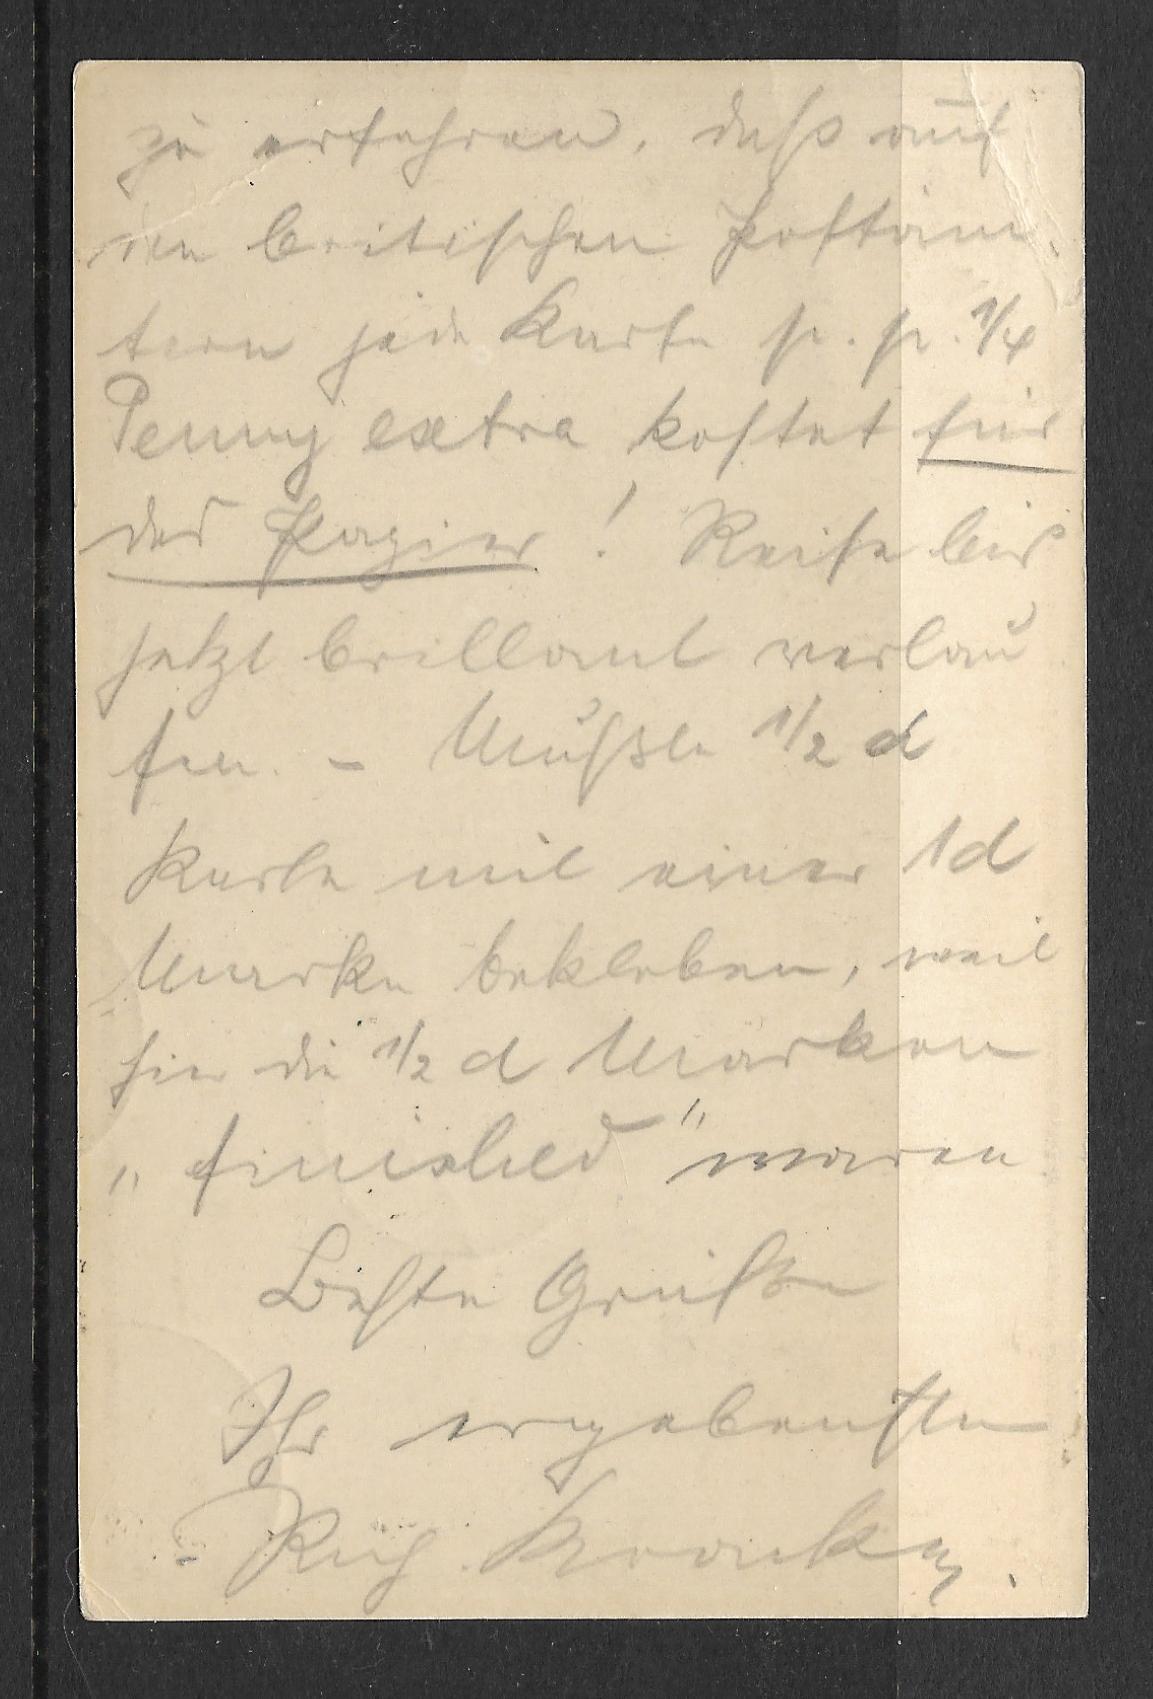 zu erfahren, daß auf
den britischen Postäm
tern jede Karte p. p. 1/4
Penny extra kostet für
das Papier! Reise bis
jetzt brillant verlau
fen. – Mußte 1/2 d
Karte mit einer 1d
Marke bekleben, weil
hier die 1/2 d Marken
„finished" waren
Beste Grüße
Ihr ergebenster